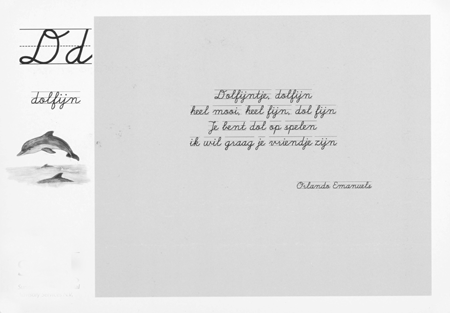 D d
dolfijn
Dolfijntje, dolfijn
heel mooi, heel fijn, dol fijn
Je bent dol op spelen
ik wil graag je vriendje zijn
Orlando Emanuels